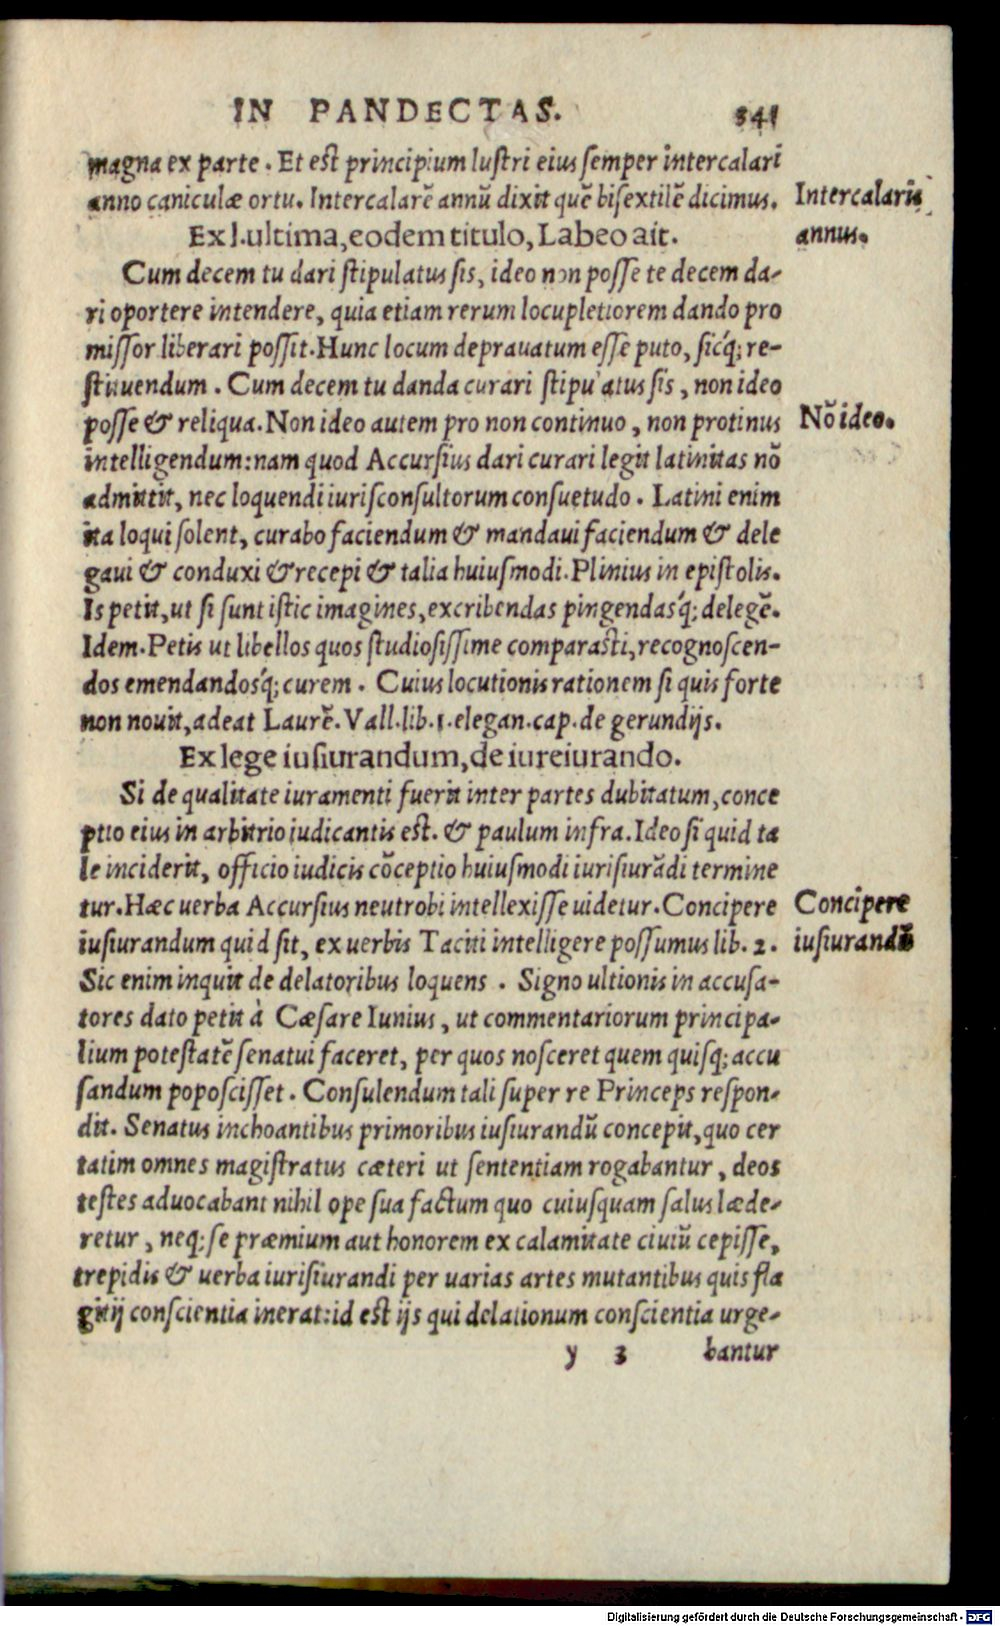 IN PANDECTAS. 341
magna ex parte. Et est principium lustri eius semper intercalari
anno caniculæ ortu. Intercalarē annū dixit quē bisextilē dicimus.
Intercalaris
annus.
Ex l.ultima, eodem titulo, Labeo ait.
Cum decem tu dari stipulatus sis, ideo non posse te decem da-
ri oportere intendere, quia etiam rerum locupletiorem dando pro
missor liberari possit. Hunc locum deprauatum esse puto, sicq́; re-
stituendum. Cum decem tu danda curari stipulatus sis, non ideo
posse & reliqua. Non ideo autem pro non continuo, non protinus
Nō ideo.
intelligendum: nam quod Accursius dari curari legit latinitas nō
admittit, nec loquendi iurisconsultorum consuetudo. Latini enim
ita loqui solent, curabo faciendum & mandaui faciendum & dele
gaui & conduxi & recepi & talia huiusmodi. Plinius in epistolis.
Is petit, ut si sunt istic imagines, excribendas pingendasq́; delegē.
Idem. Petis ut libellos quos studiosissime comparasti, recognoscen-
dos emendandosq́; curem. Cuius locutionis rationem si quis forte
non nouit, adeat Laurē. Vall. lib. 1. elegan. cap. de gerundijs.
Ex lege iusiurandum, de iureiurando.
Si de qualitate iuramenti fuerit inter partes dubitatum, conce
ptio eius in arbitrio iudicantis est. & paulum infra. Ideo si quid ta
le inciderit, officio iudicis cōceptio huiusmodi iurisiurādi termine
tur. Hæc uerba Accursius neutrobi intellexisse uidetur. Concipere
iusiurandum quid sit, ex uerbis Taciti intelligere possumus lib. 2.
Concipere
iusiurandū
Sic enim inquit de delatoribus loquens. Signo ultionis in accusa-
tores dato petit à Cæsare Iunius, ut commentariorum principa-
lium potestatē senatui faceret, per quos nosceret quem quisq; accu
sandum poposcisset. Consulendum tali super re Princeps respon-
dit. Senatus inchoantibus primoribus iusiurandū concepit, quo cer
tatim omnes magistratus cæteri ut sententiam rogabantur, deos
testes aduocabant nihil ope sua factum quo cuiusquam salus læde-
retur, neq; se præmium aut honorem ex calamitate ciuiū cepisse,
trepidis & uerba iurisiurandi per uarias artes mutantibus quis fla
gitij conscientia inerat: id est ijs qui delationum conscientia urge-
y 3 bantur
Digitalisierung gefördert durch die Deutsche Forschungsgemeinschaft - DFG